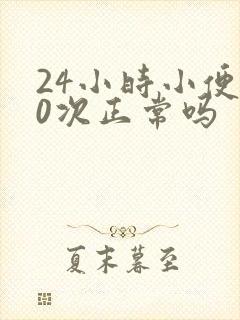 24小時小便
0次正常吗
夏末暮至